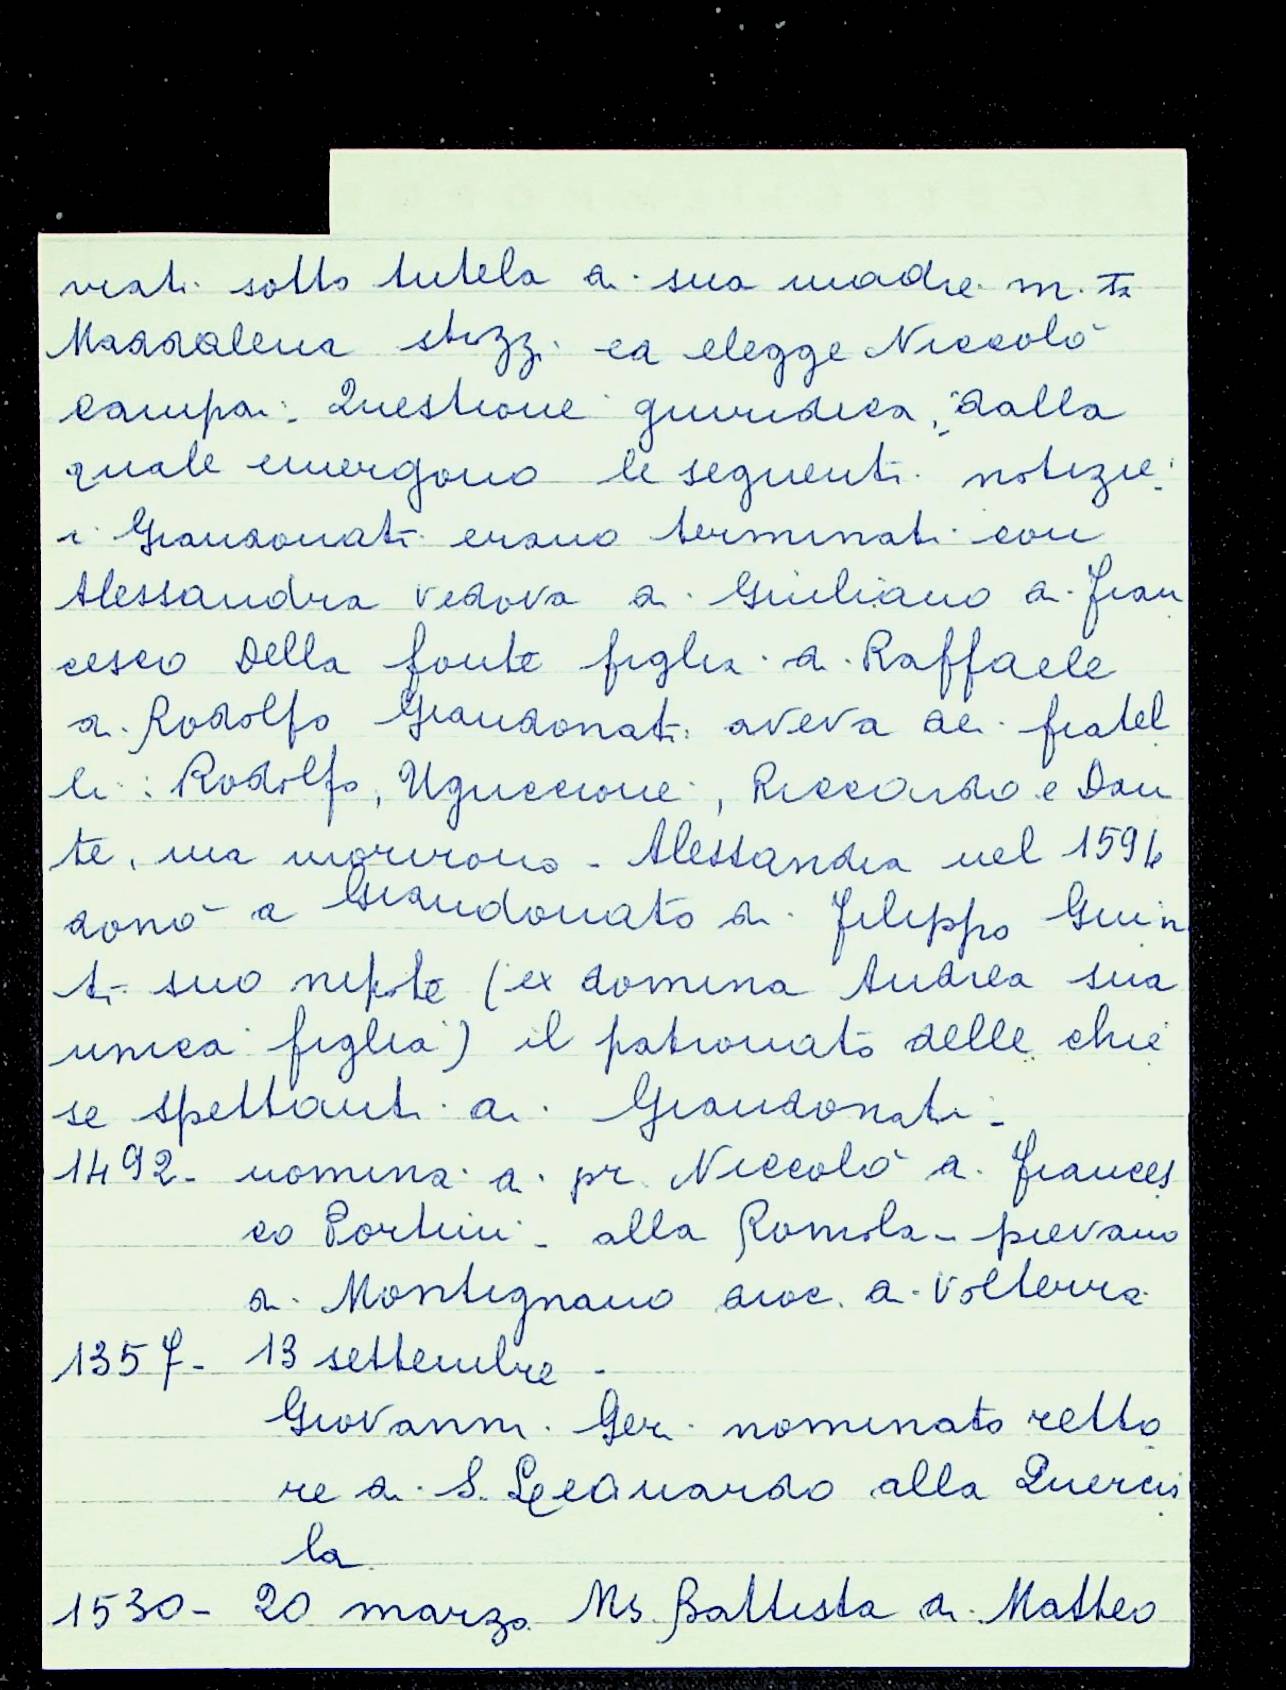 viati sotto tutela di sua madre m.ta
Maddalena stizzi ed elegge Niccolò
Campai. Questione giuridica, dalla
quale emergono le seguenti notizie:
i Giandonati erano terminati con
Alessandra vedova di Giuliano di Fran
cesco Della fonte figlia di Raffaele
di Rodolfo Giandonati aveva dei fratel
li: Rodolfo, Uguccione, Riccardo e Dan
te, ma morirono - Alessandra nel 1594
donò a Giandonato di Filippo Guin
ti suo nipote (ex domina Andrea sua
unica figlia) il patronato delle chie
se spettanti ai Giandonati -
1492 - nomina di pr. Niccolò di Frances
co Portini - alla Romola - pievano
di Montignano dioc. di Volterra
1357 - 13 settembre -
Giovanni Geri nominato retto
re di S. Leonardo alla Quercio
la
1530 - 20 marzo Ms. Battista di Matteo